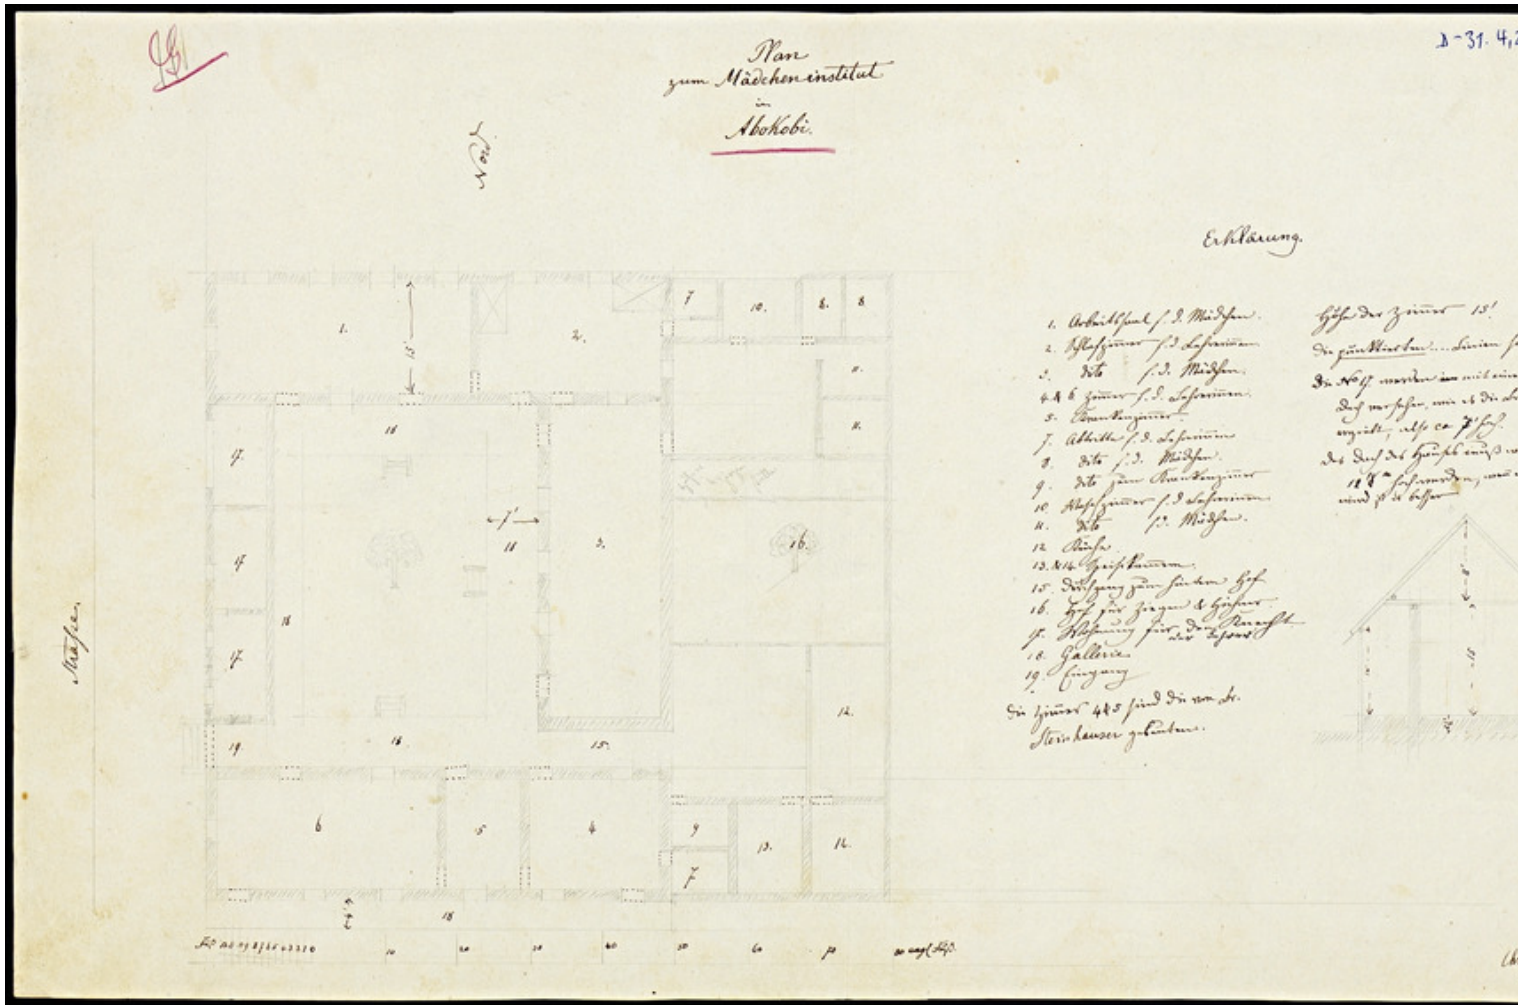 D-31. 4,2
Plan
zum Mädcheninstitut
in
Abokobi.
Nord
Erklärung.
1. Arbeitssaal f. d. Mädchen.
2. Schlafzimmer f. d. Lehrerinnen
3. dito f. d. Mädchen.
4 & 6 Zimmer f. d. Lehrerinnen.
5. Krankenzimmer.
7. Abtritte f. d. Lehrerinnen
8. dito f. d. Mädchen.
9. dito zum Krankenzimmer
10. Waschzimmer f. d. Lehrerinnen
11. dito f. d. Mädchen.
12. Küche.
13. & 14. Speisekammern.
15. Durchgang zum hintern Hof
16. Hof für Ziegen & Hühner.
17. Wohnung für den Knecht
oder Lehrer
18. Gallerie
19. Eingang
Die Zimmer 4 & 5 sind die von Br.
Steinhauser gebauten.
Höhe der Zimmer 15'
Die punktierten.... Linien
Die No 17 werden mit
Dach versehen, wie es die
also ca 7' hoch.
Das Dach des Hauses muß
hoch werden,
wird ist es besser
1.
15'
2.
7
10.
8.
8
11.
11.
17.
18
7'
18
3.
16.
17
18
17.
12.
19.
18.
15.
6
5
4
9
7
13.
14.
18
Straße.
10
20
30
40
50
60
70
80 engl. Fuß.
15